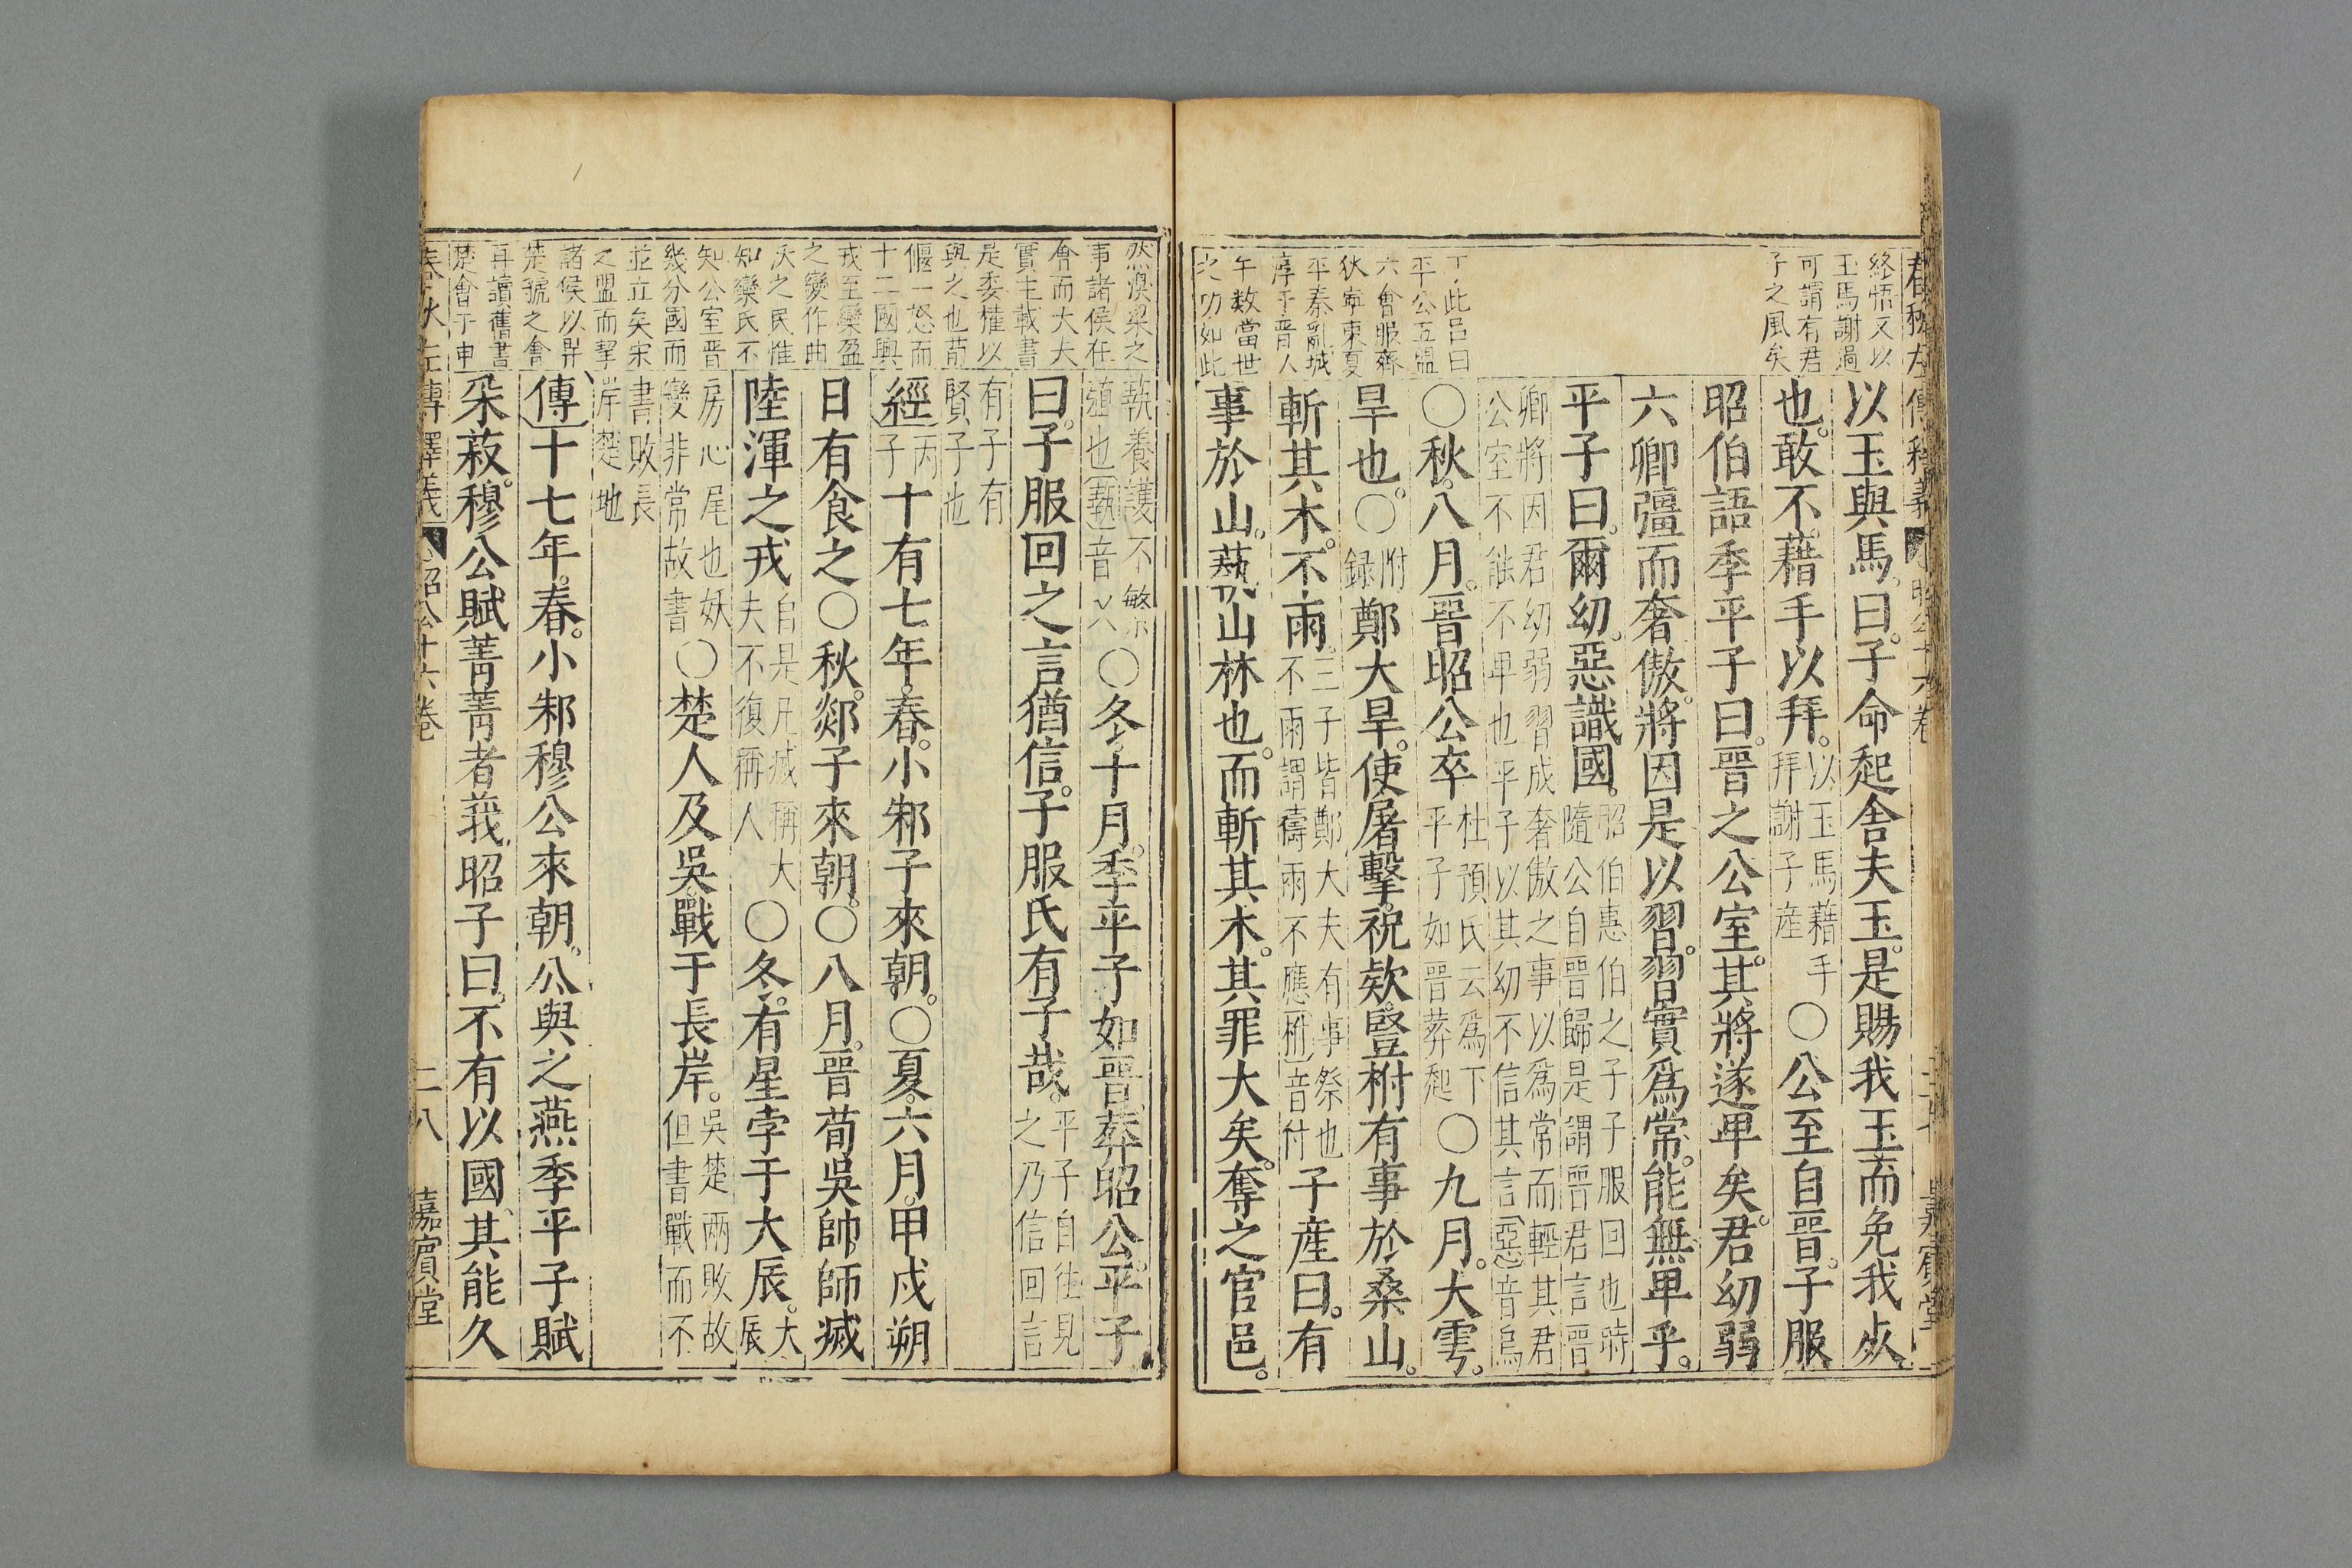 春秋左傳釋義 昭公十六卷 二十七 嘉賓堂
終悟又以
玉馬謝過
可謂有君
子之風矣
以玉與馬曰子命起舍夫玉是賜我玉而免我死
也敢不藉手以拜以玉馬藉手拜謝子產○公至自晉子服
昭伯語季平子曰晉之公室其將遂卑矣君幼弱
六卿彊而奢傲將因是以習習實爲常能無卑乎
平子曰爾幼惡識國昭伯惠伯之子子服回也時隨公自晉歸是謂晉君言晉
卿將因君幼弱習成奢傲之事以爲常而輕其君
公室不能不卑也平子以其幼不信其言惡音烏
丁此呂曰
平公五盟
六會服齊
狄寧東夏
平秦亂城
淳于晉人
午數當世
之功如此
○秋八月晉昭公卒杜預氏云爲下平子如晉葬起○九月大雩
旱也○附録鄭大旱使屠擊祝款豎柎有事於桑山
斬其木不雨三子皆鄭大夫有事祭也不雨謂禱雨不應柎音付子產曰有
事於山蓺山林也而斬其木其罪大矣奪之官邑
然溴梁之
事諸侯在
會而大夫
實主載書
是委權以
與之也荀
偃一怒而
十二國興
戎至欒盈
之變作曲
沃之民惟
知欒氏不
知公室晉
幾分國而
並立矣宋
之盟而挈
諸侯以畀
楚虢之會
再讀舊書
楚會于申
蓺養護不繁殖也蓺音乂○冬十月季平子如晉葬昭公平子
曰子服回之言猶信子服氏有子哉平子自往見之乃信回言
有子有
賢子也
經丙子十有七年春小邾子來朝○夏六月甲戌朔
日有食之○秋郯子來朝○八月晉荀吳帥師滅
陸渾之戎自是凡滅稱大夫不復稱人○冬有星孛于大辰大辰
房心尾也妖變非常故書○楚人及吳戰于長岸吳楚兩敗故但書戰而不
書敗長
岸楚地
傳十七年春小邾穆公來朝公與之燕季平子賦
采菽穆公賦菁菁者莪昭子曰不有以國其能久
春秋左傳釋義 昭公十六卷 二八 嘉賓堂